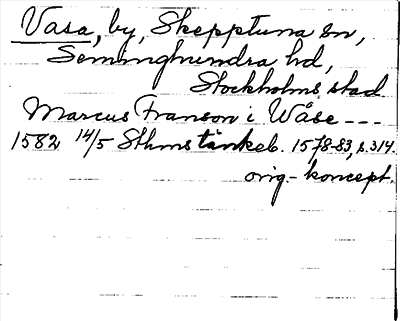 Vasa, by, Skepptuna sn,
Seminghundra hd,
Stockholms stad
Marcus Franson i Wåse ---
1582 14/5 Sthms tänkeb. 1578-83, s. 314.
orig.-koncept.